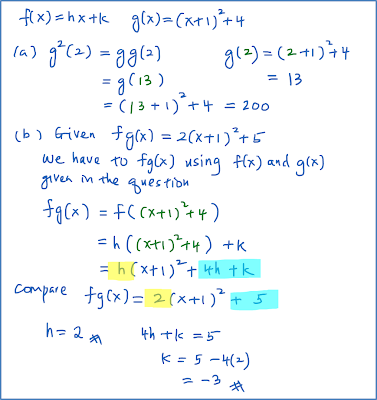 f(x) = hx+k    g(x) = (x+1)²+4
(a) g²(2) = gg(2)    g(2) = (2+1)²+4
= g(13)    = 13
= (13+1)²+4 = 200
(b) Given fg(x) = 2(x+1)²+5
we have to fg(x) using f(x) and g(x)
given in the question
fg(x) = f((x+1)²+4)
= h((x+1)²+4) + k
= h(x+1)² + 4h+k
compare fg(x) = 2(x+1)² + 5
h = 2 #    4h+k = 5
k = 5 - 4(2)
= -3 #